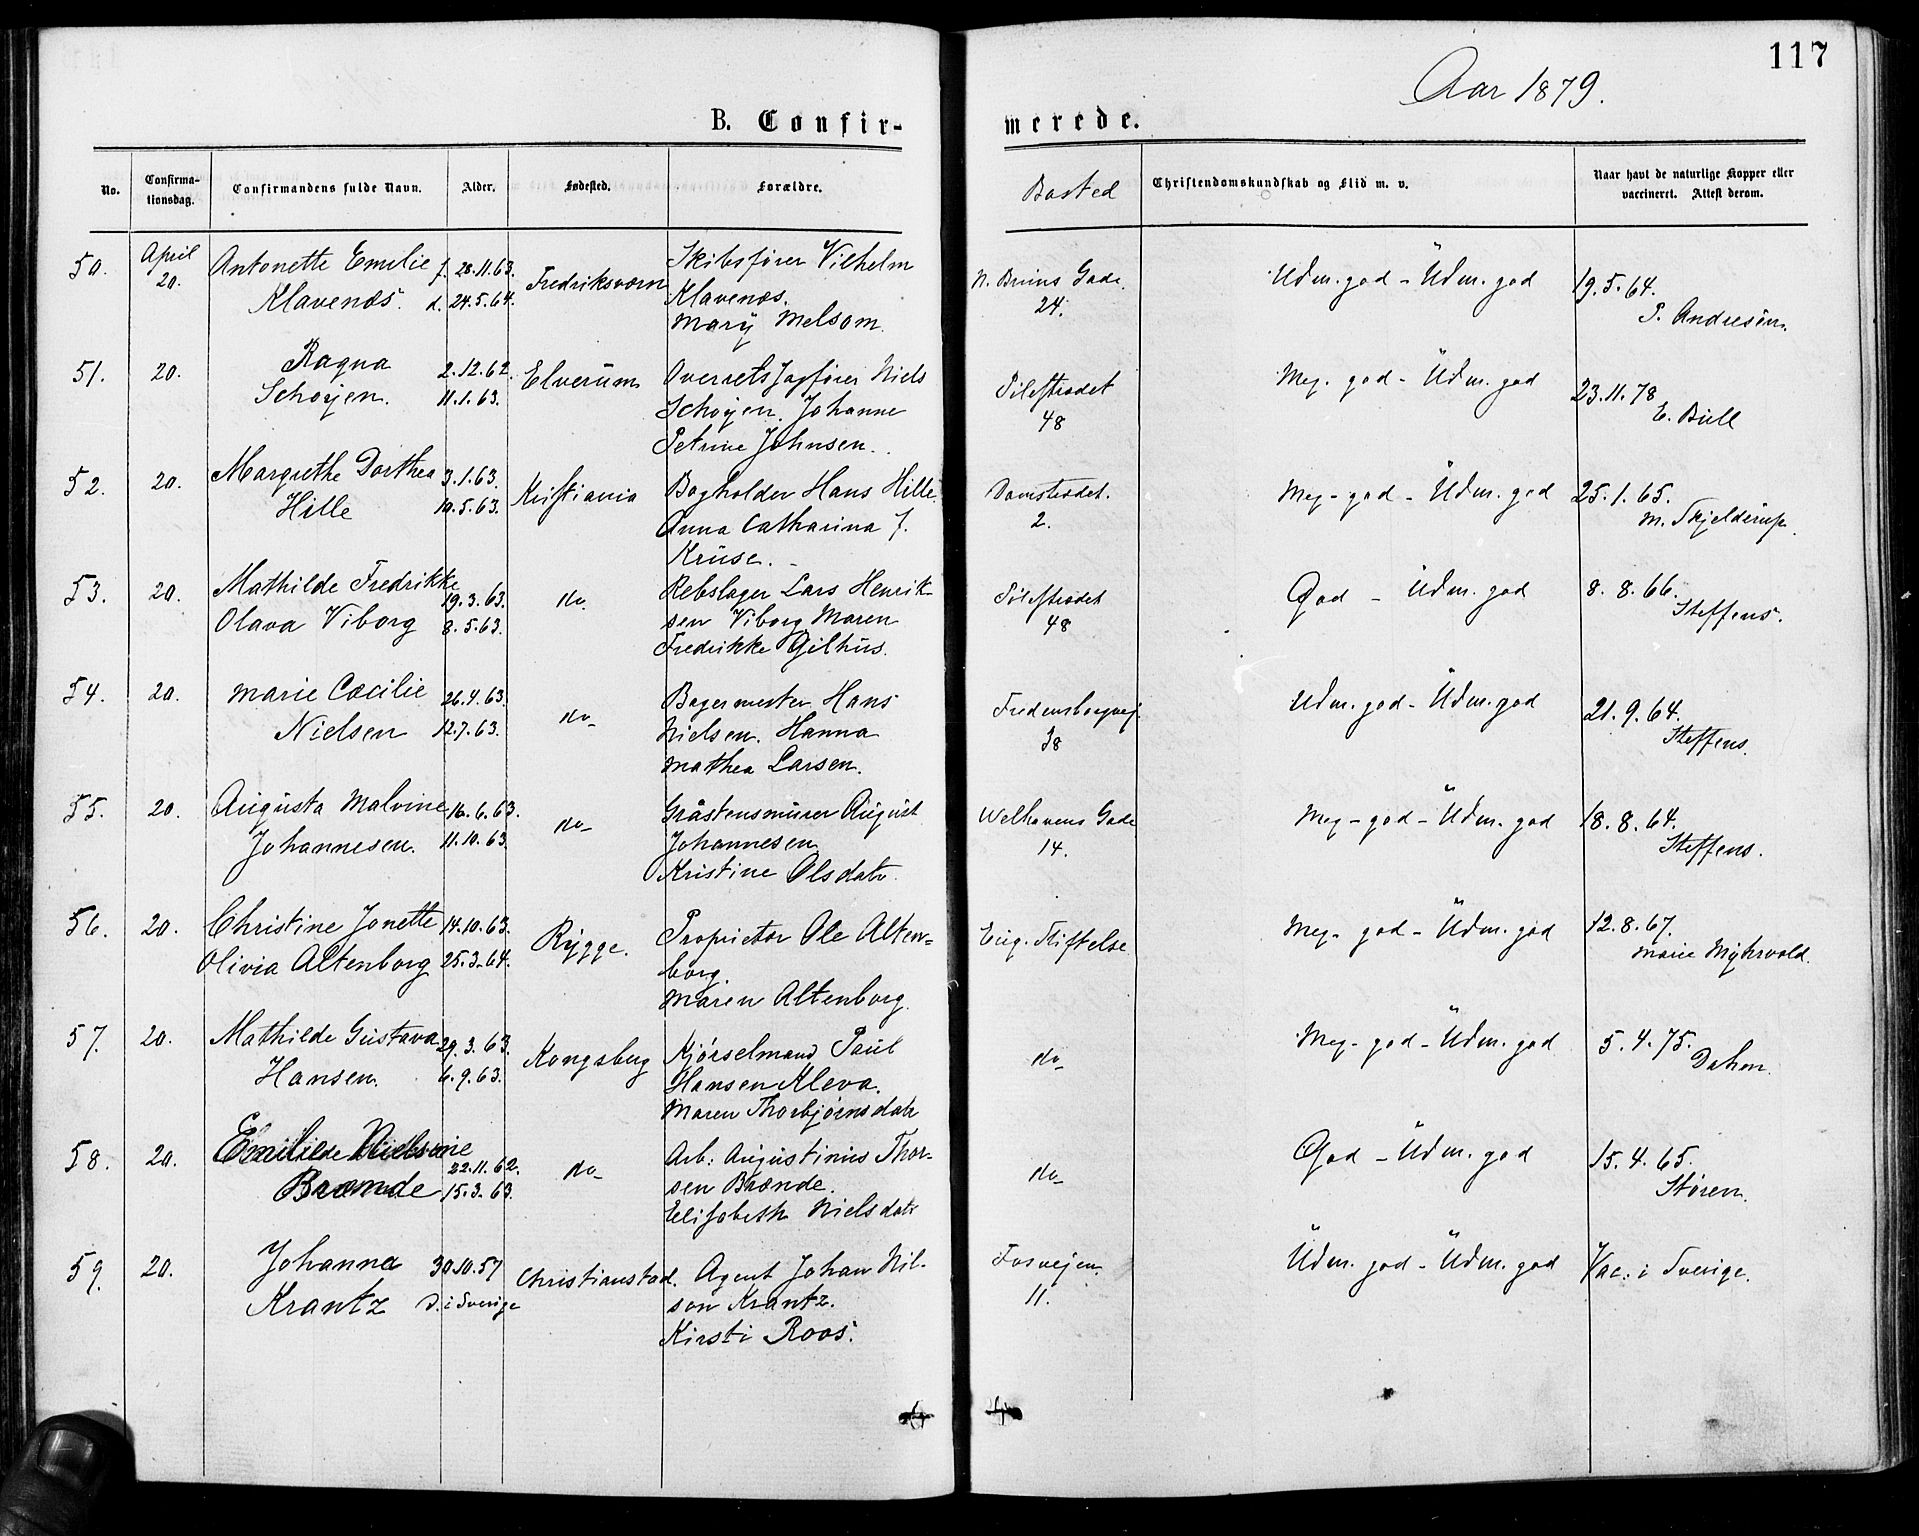 117
Aar 1879.
B. Confir-
merede.
No.
Confirma-
tionsdag.
Confirmandens fulde Navn.
Alder.
Fødested.
Forældre.
Bosted
Christendomskundskab og Flid m. v.
Naar havt de naturlige Kopper eller
vaccineret. Attest derom.
50. April Antonette Emilie f. 28.11.63. Fredriksværn Skibsfører Vilhelm N. Bruns Gade. Üdm. god - Üdm. god 19.5.64.
20. Klavenæs. d. 24.5.64. Klavenæs. 24. P. Andresen.
Mary Melsom.
51. 20. Ragna 2.12.62. Elverum Overretssagfører Niels Pilestrædet Meg. god - Üdm. god 23.11.78
Schøyen. 11.1.63. Schøyen. Johanne 48 E. Bull
Petrine Johnsen.
52. 20. Margrethe Dorthea 3.1.63. Kristiania Bogholder Hans Hille. Damstrædet. Meg. god - Üdm. god 25.1.65.
Hille 10.5.63. Anna Catharina f. 2. M. Skjelderup.
Kruse.
53. 20. Mathilde Fredrikke 19.3.63. do. Rebslager Lars Henrik- Pilestrædet God - Üdm. god 8.8.66.
Olava Viborg 8.5.63. sen Viborg. Maren 48 Steffens.
Fredrikke Gilhus.
54. 20. Marie Cæcilie 26.4.63. do Bagermester Hans Fredensborgvej. Üdm. god - Üdm. god 21.9.64.
Nielsen 12.7.63. Nielsen. Hanna 38 Steffens.
Mathea Larsen.
55. 20. Augusta Malvine 16.6.63. do Gråstensmurer August Welhavens Gade Meg. god - Üdm. god 18.8.64.
Johannesen. 11.10.63. Johannesen. 14. Steffens.
Kristine Olsdatr.
56. 20. Christine Jonette 14.10.63. Rygge. Proprietær Ole Alten- Eug. Stiftelse Meg. god - Üdm. god 12.8.67.
Olivia Altenborg 25.3.64. borg. Marie Myhrvold.
Maren Altenborg.
57. 20. Mathilde Gustava 29.3.63. Kongsberg Kjørselmand Paul do Meg. god - Üdm. god 5.4.75.
Hansen. 6.9.63. Hansen Kleva. Dahm.
Maren Thorbjørnsdatr
58. 20. 22.11.62. do Arb: Augustinus Thor- do God - Üdm. god 15.4.65.
Brænde 15.3.63. sen Brænde. Støren.
Elisabeth Nielsdatr
59. 20. Johanna 30.10.57 Christianstad. Agent Johan Nil- Fosvejen. Üdm. god - Üdm. god Vac: i Sverige.
Krantz D. i Sverige son Krantz. 11.
Kirsti Roos.